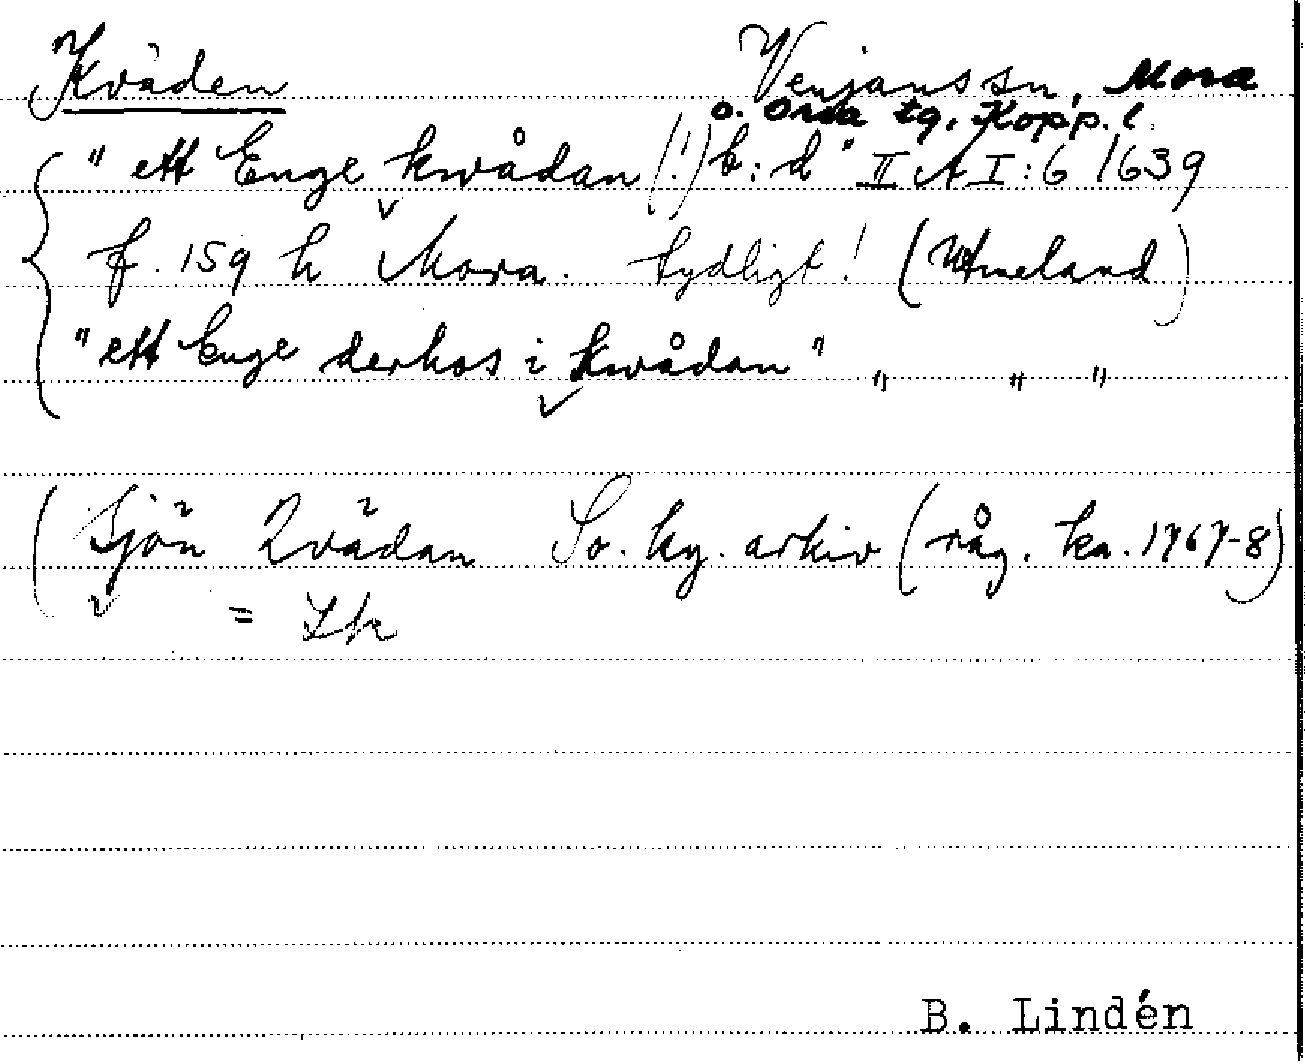 Kväden Venjans sn, Mora
o. Orsa tg, Kopp. l.
" ett Enge kwådan (!) b:d " II A I:6 1639
f. 159 h Mora. tydligt!
" ett Enge derhos i kwådan " " " "
( Sjön Qvädan So. ky. arkiv (råg. ka. 1767-8)
=
B. Lindén